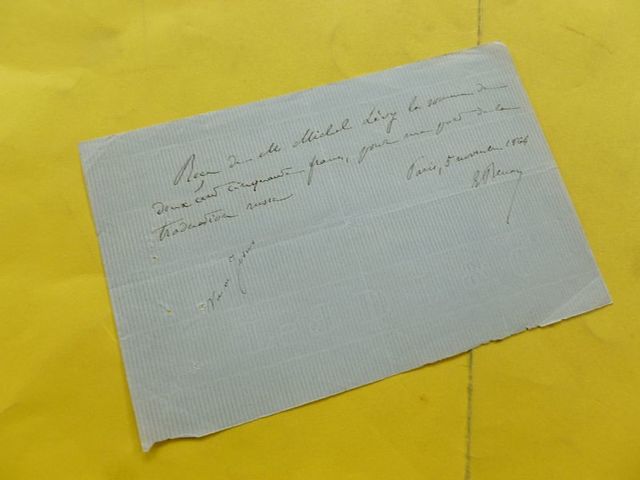 Reçu de M. Michel Lévy la somme de
deux cent cinquante francs, pour ma part de la
traduction russe
Paris, 5 novembre 1864
E. Renan